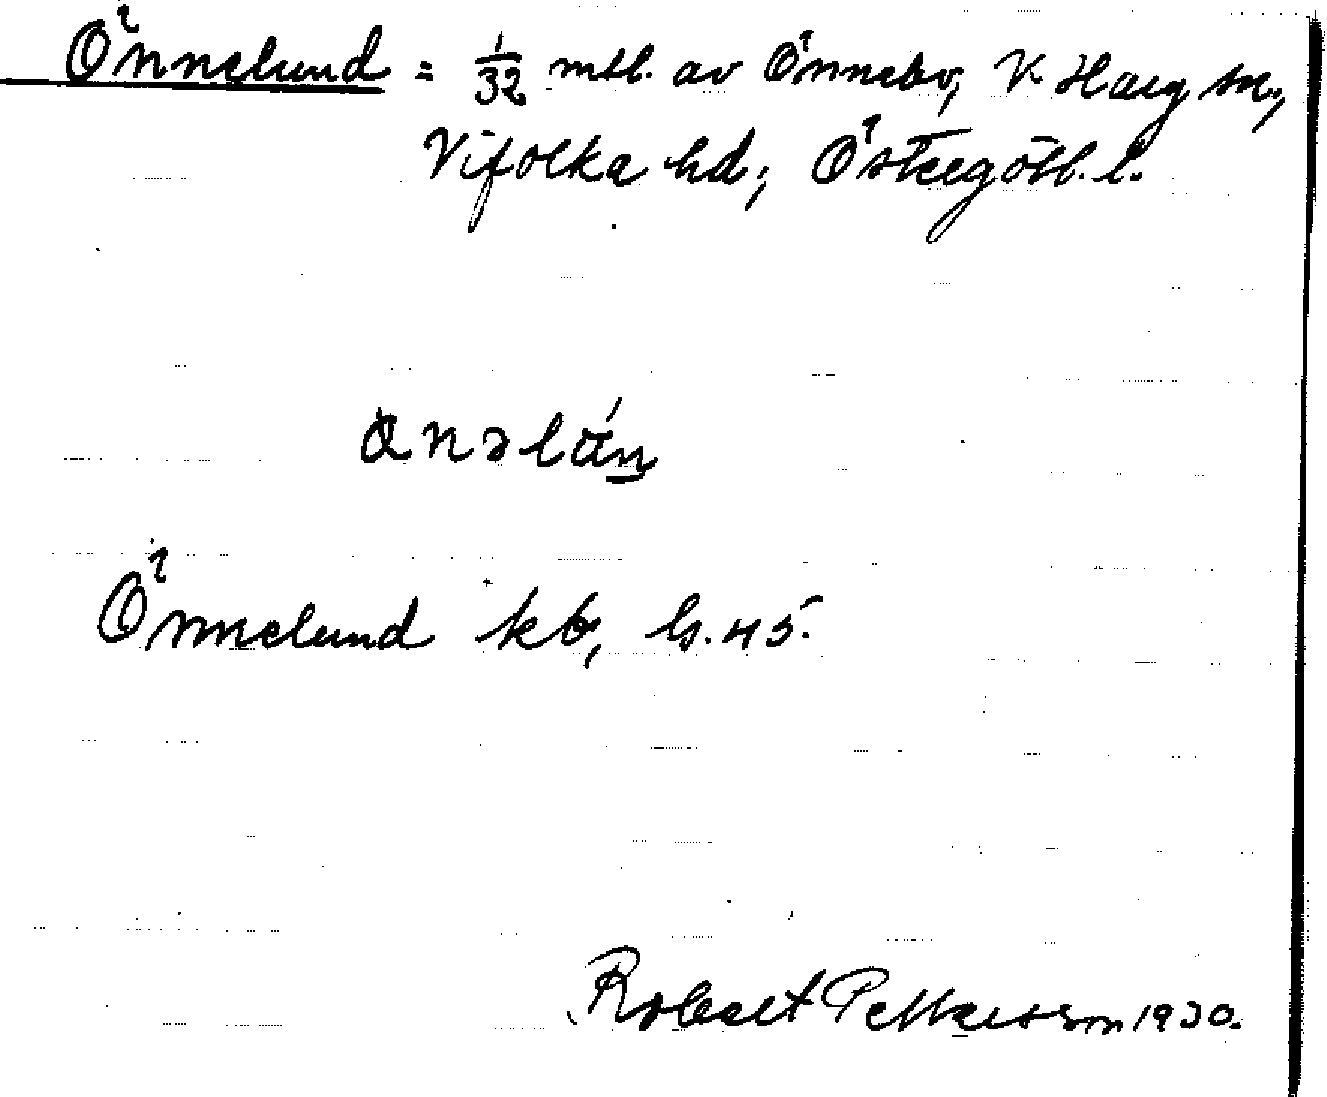 Önnelund = 1/32 mtl. av Önnebo, V Harg sn,
Vifolka hd, Östergötl. l.
Önnelund kb, hs. 45.
Robert Pettersson 1930.